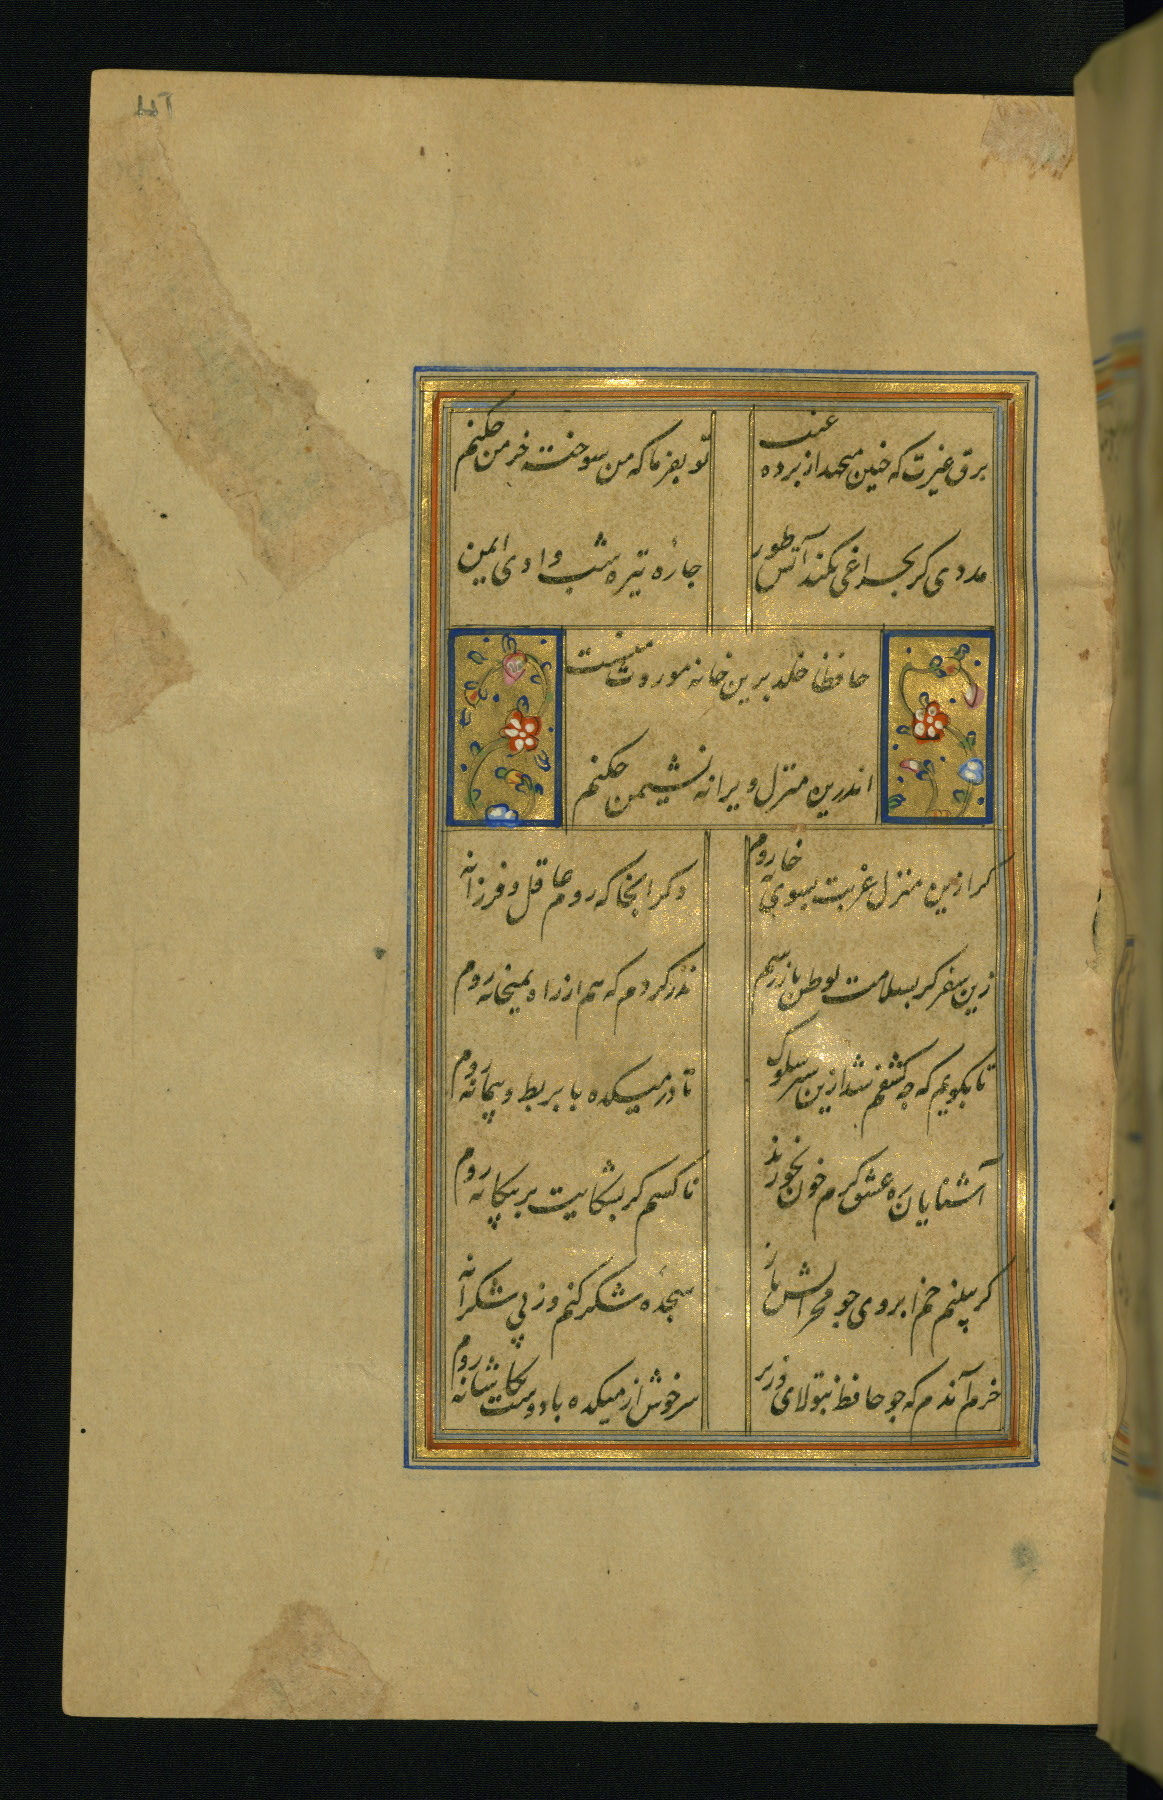 برق غیرت که چنین میجهد از پرده غیب
تو بفرما که من سوخته خرمن چکنم
مددی گر بچراغی نکند آتش طور
چارۀ تیره شب وادی ایمن
حافظا خلد برین خانه موروث منست
اندرین منزل ویرانه نشیمن چکنم
گر ازین منزل غربت بسوی خانه روم
دگر آنجا که روم عاقل و فرزانه
زین سفر گر بسلامت بوطن باز رسم
نذر کردم که هم از راه بمیخانه روم
تا بگویم که چه کشفم شد ازین سیر سلوک
تا در میکده با بربط و پیمانه روم
آشنایان ره عشق گرم خون بخورند
ناکسم گر بشکایت بر بیگانه روم
گر ببینم خم ابروی چو محرابش باز
سجدۀ شکر کنم وز پی شکرانه روم
خرم آندم که چو حافظ بتولای وزیر
سرخوش از میکده با دوست بکاشانه